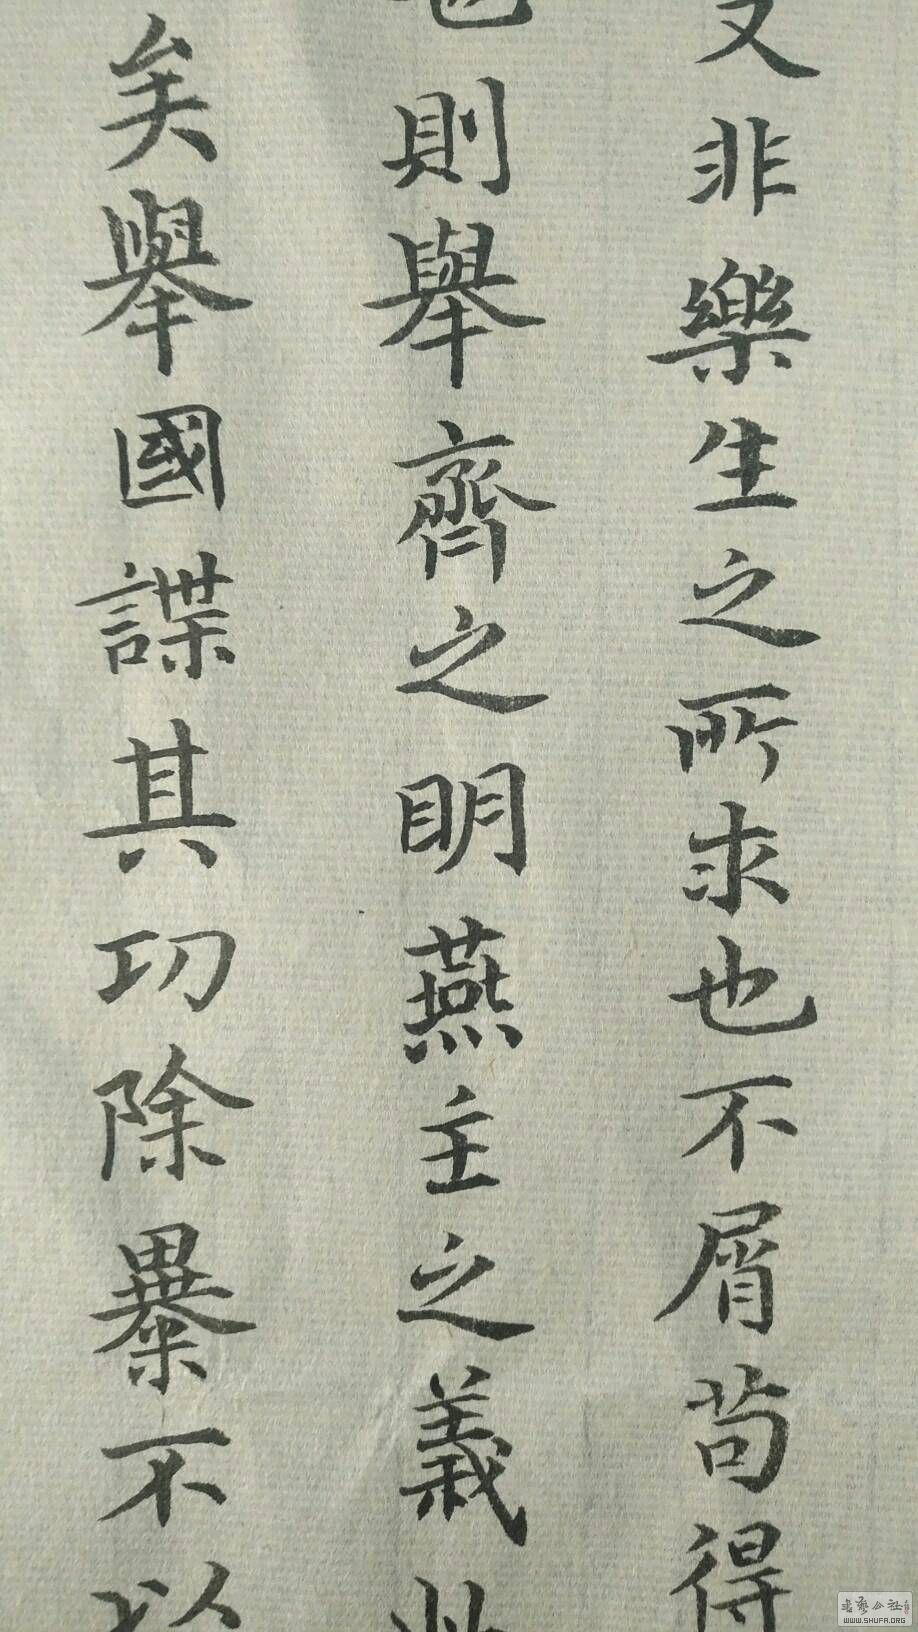 又非樂生之所求也不屑苟得
也則舉齊之明燕主之義此
矣舉國謀其功除暴不以
書藝公社
WWW.SHUFA.ORG